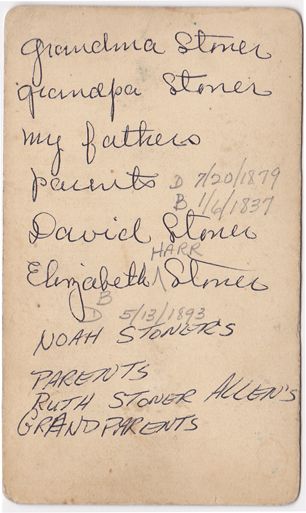 Grandma Stoner
grandpa Stoner
my fathers
parents D 7/20/1879
B 1/6/1837
David Stoner
HARR
Elizabeth Stoner
B
D 5/13/1893
NOAH STONER'S
PARENTS
RUTH STONER ALLEN'S
GRANDPARENTS